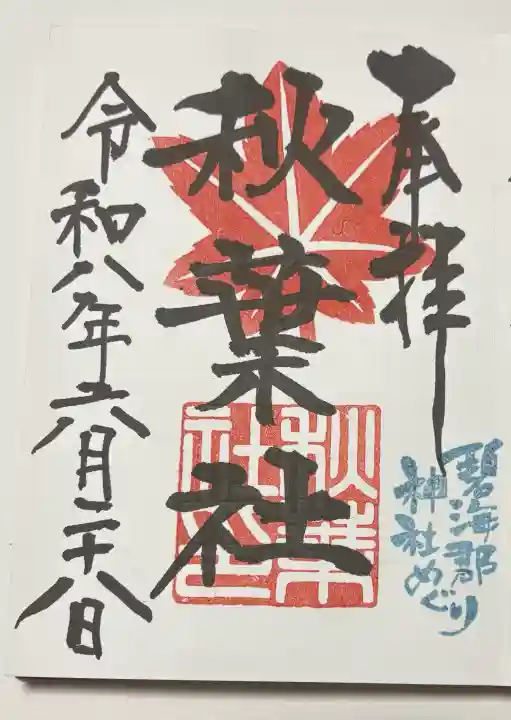 奉拝
碧海郡
神社めぐり
秋葉社
秋葉
社印
令和八年六月二十八日